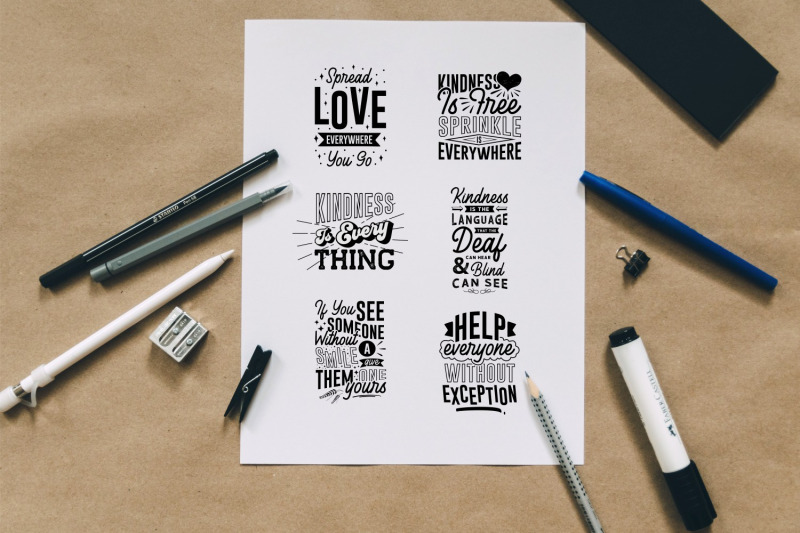 Spread
LOVE
EVERYWHERE
You Go
KINDNESS
Is Free
SPRINKLE
IS
EVERYWHERE
KINDNESS
Is Every
THING
Kindness
IS THE
LANGUAGE
THAT THE
Deaf
CAN HEAR
& Blind
CAN SEE
If You SEE
SOMEONE
Without
A
SMILE give
THEM ONE
of yours
HELP
everyone
WITHOUT
EXCEPTION
STABILO
FABER-CASTELL